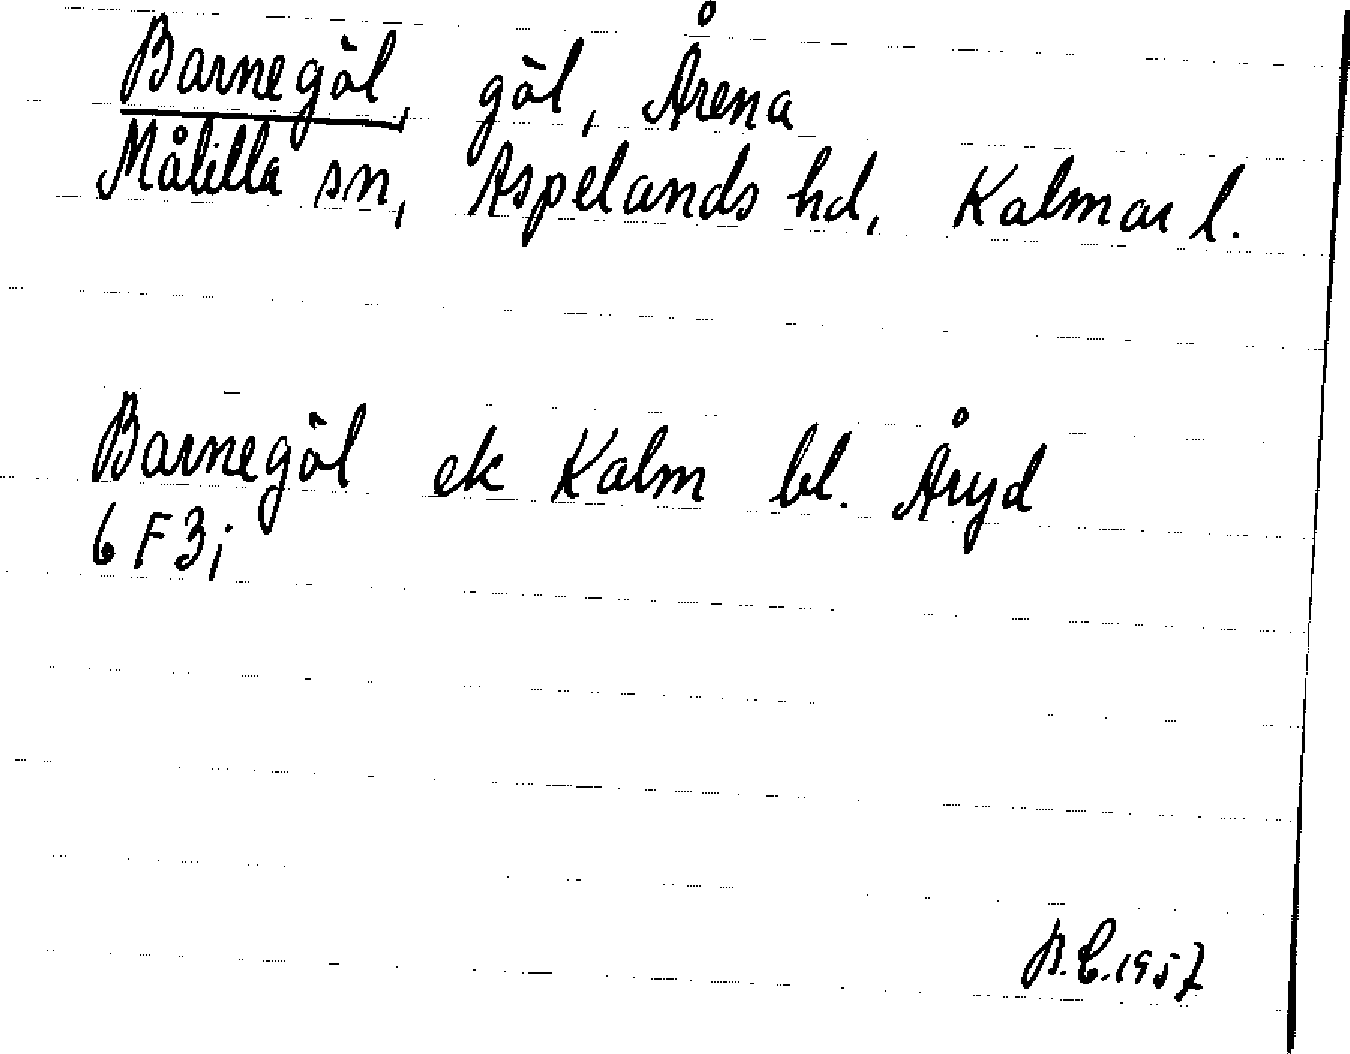 Barnegöl, göl, Årena
Målilla sn, Aspelands hd, Kalmar l.
Barnegöl ek Kalm bl. Åryd
6 F 3 i
B.C. 1957